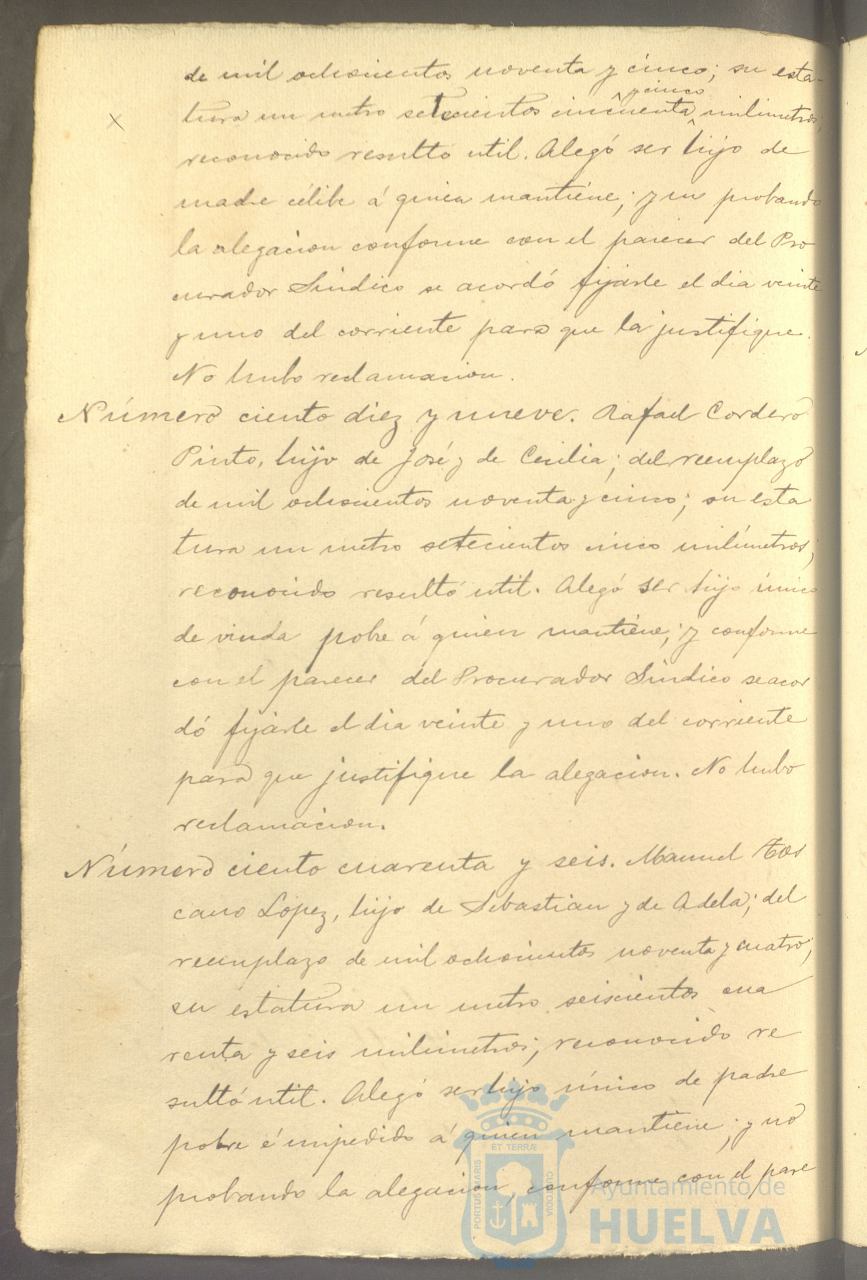 de mil ochocientos noventa y cinco; su esta-
y cinco
tura un metro setecientos cincuenta milimetros,
reconocido resultó util. Alegó ser hijo de
madre célibe á quien mantiene; y no probando
la alegacion conforme con el parecer del Pro
curador Sindico se acordó fijarle el dia veinte
y uno del corriente para que la justifique.
No hubo reclamacion.
Número ciento diez y nueve. Rafael Cordero
Pinto, hijo de José y de Cecilia; del reemplazo
de mil ochocientos noventa y cinco; su esta
tura un metro setecientos cinco milímetros;
reconocido resultó util. Alegó ser hijo único
de viuda pobre á quien mantiene; y conforme
con el parecer del Procurador Sindico se acor
dó fijarle el dia veinte y uno del corriente
para que justifique la alegacion. No hubo
reclamacion.
Número ciento cuarenta y seis. Manuel Tos
cano López, hijo de Sebastian y de Adela; del
reemplazo de mil ochocientos noventa y cuatro;
su estatura un metro seiscientos cua
renta y seis milimetros; reconocido re
sultó util. Alegó ser hijo único de padre
pobre é impedido á quien mantiene; y no
probando la alegacion, conforme con el pare
PORTUS MARIS
ET TERRÆ
CUSTODIA
Ayuntamiento de
HUELVA